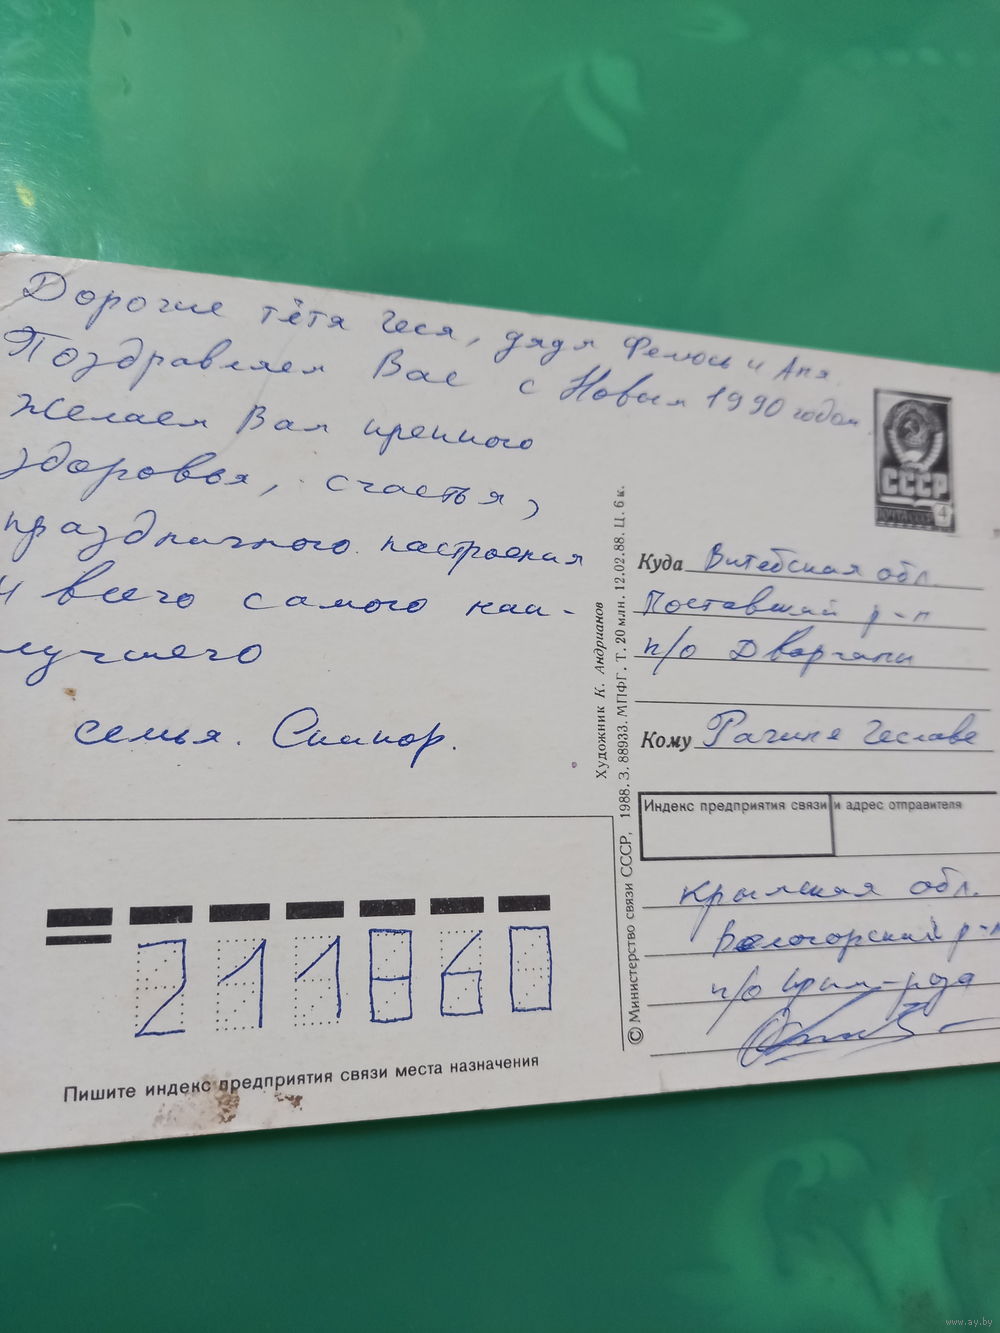 Дорогие тётя Чеся, дядя Фелюсь и Аня.
Поздравляем Вас с Новым 1990 годом.
Желаем Вам крепкого
здоровья, счастья,
праздничного настроения
и всего самого наи-
лучшего
семья.
СССР
4
Куда Витебская обл.
Поставский р-н
п/о Дварчаны
Кому Рачине Чеславе
Индекс предприятия связи и адрес отправителя
Крымская обл.
Белогорский р-н
п/о
211860
Пишите индекс предприятия связи места назначения
Художник К. Андрианов
© Министерство связи СССР, 1988. З. 88933. МПФГ. Т. 20 млн. 12.02.88. Ц. 6 к.
www.ay.by